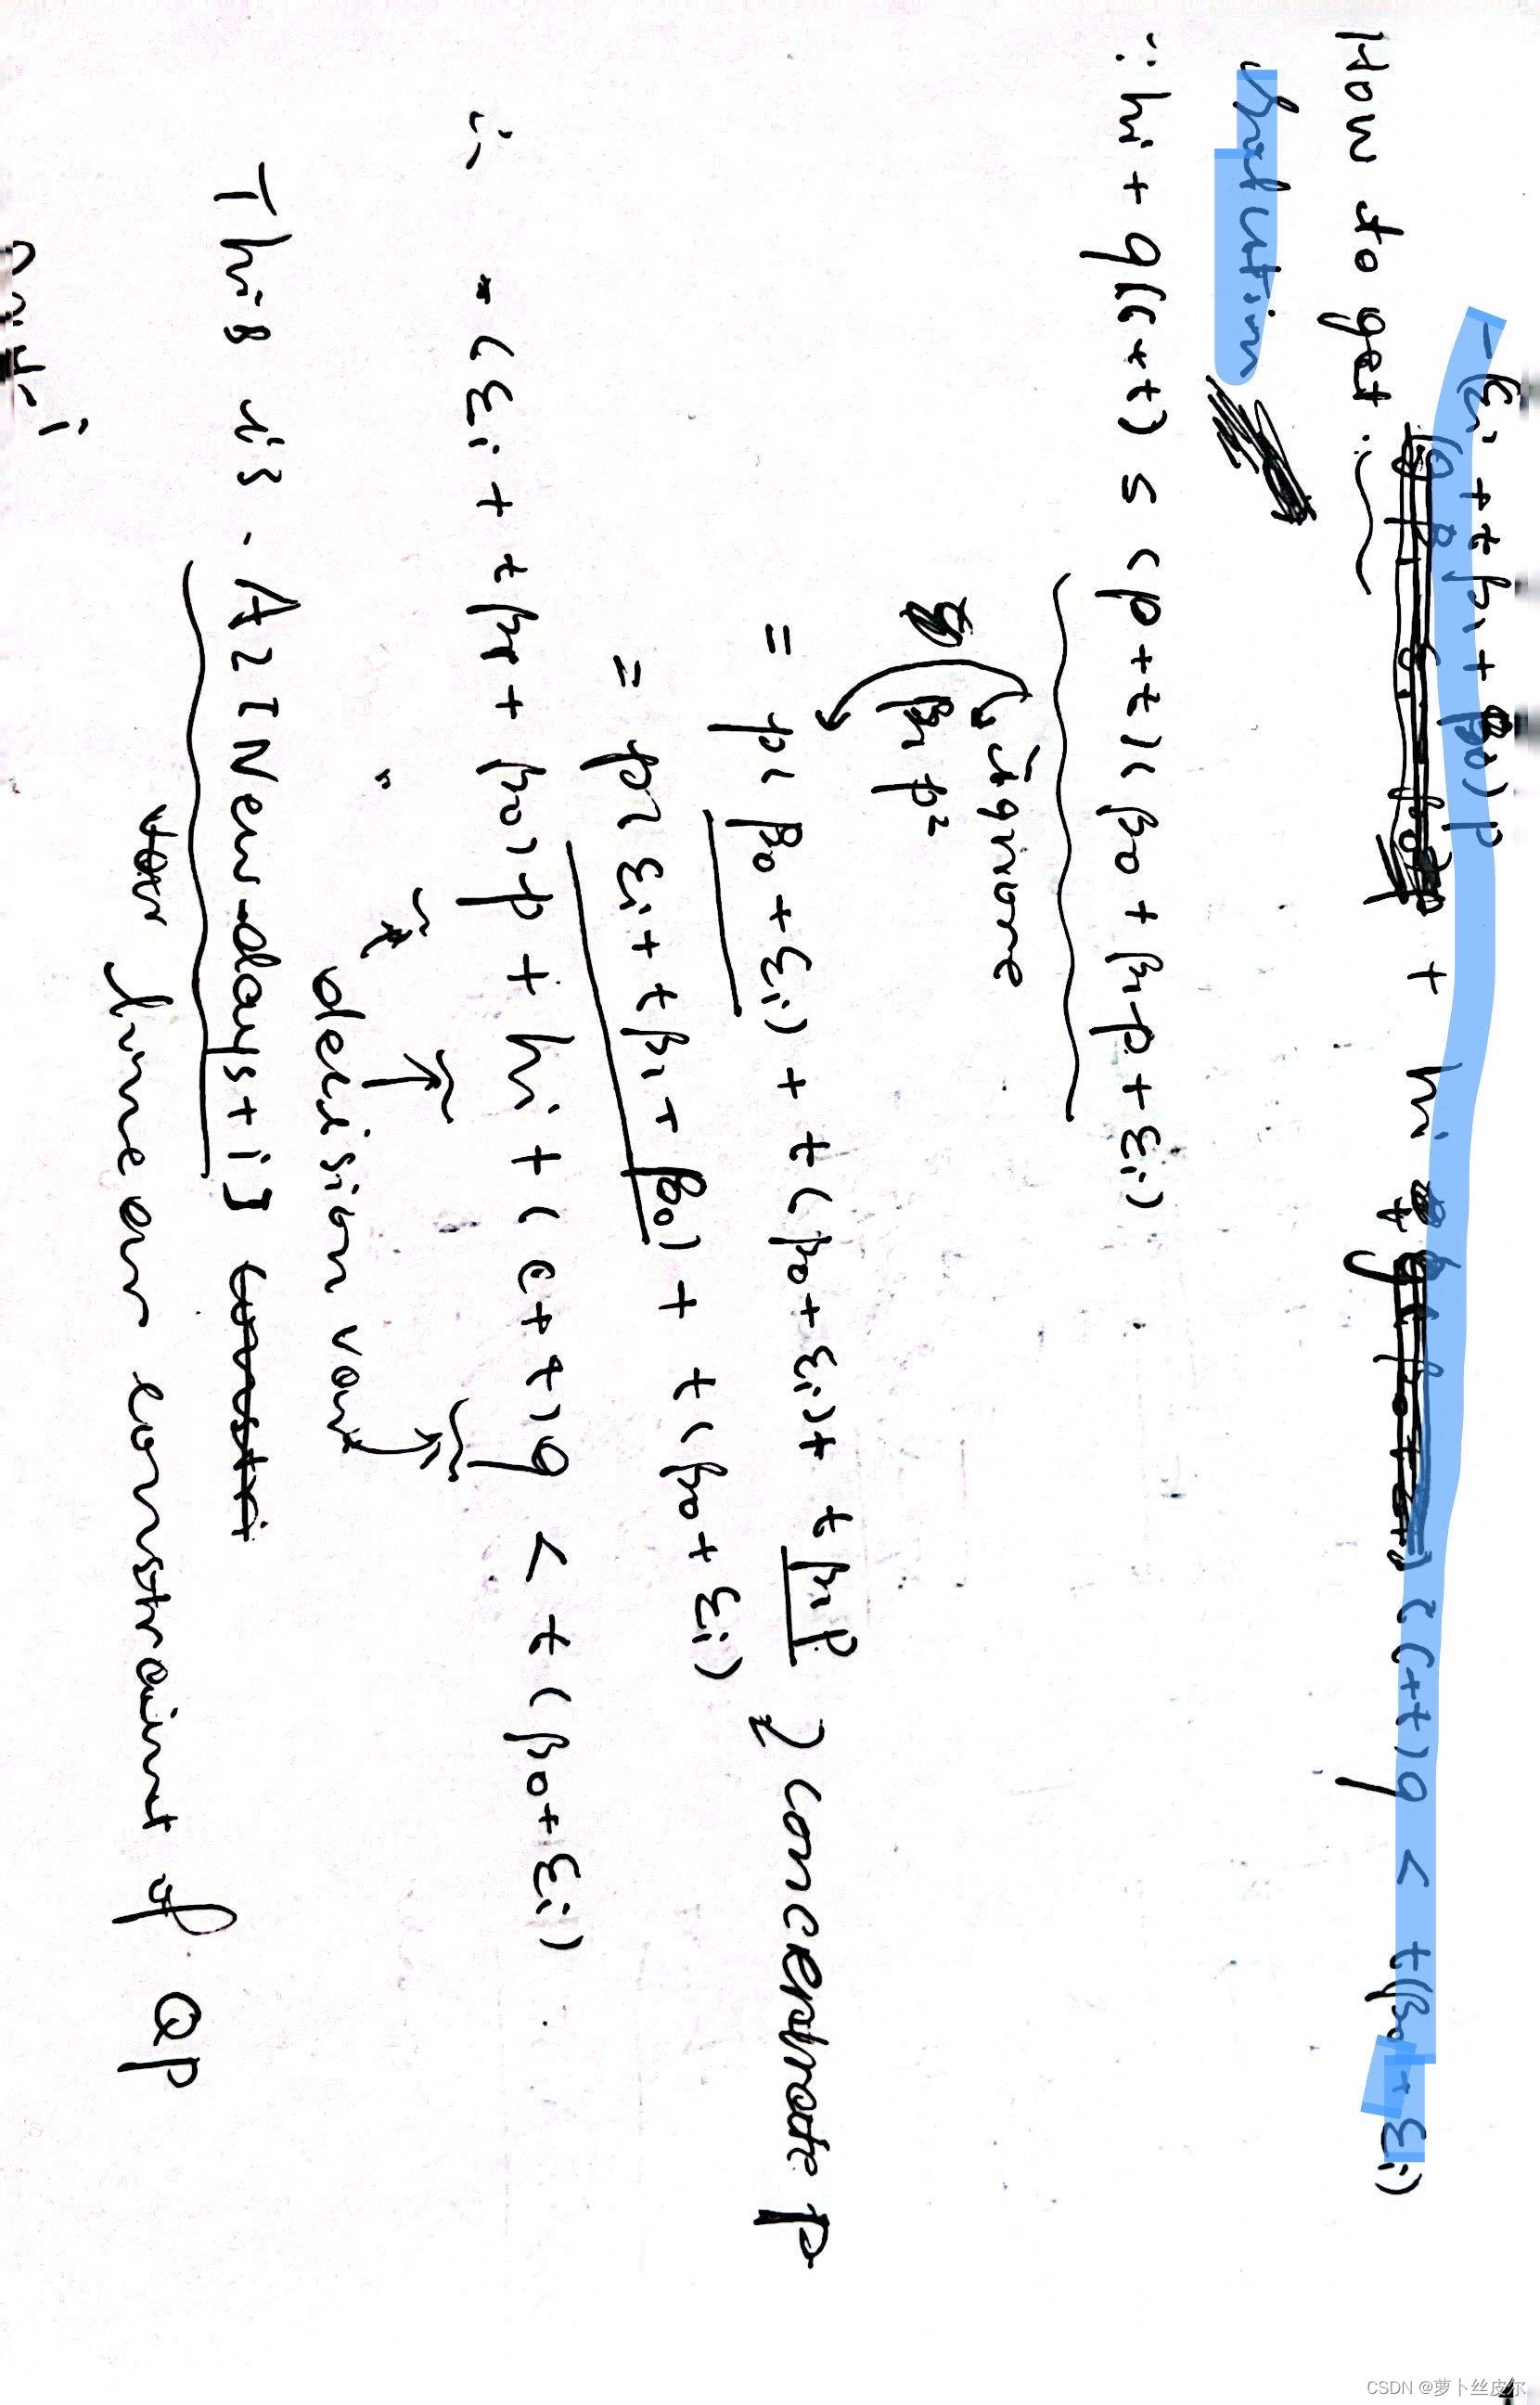 -(εi + tβ1 + β0)p
+ hi + (c+t)q < t(β0 + εi)
How to get:
∵ hi + q(c+t) ≤ (p+t)(β0 + β1p + εi)
ignore
β1p²
= p(β0 + εi) + t(β0 + εi) + tβ1p } concentrate p
= p(εi + tβ1 + β0) + t(β0 + εi)
∴ -(εi + tβ1 + β0)p + hi + (c+t)q < t(β0 + εi)
decision var
This is. A2[New-days+i]
linear constraint of QP
CSDN @萝卜丝皮尔